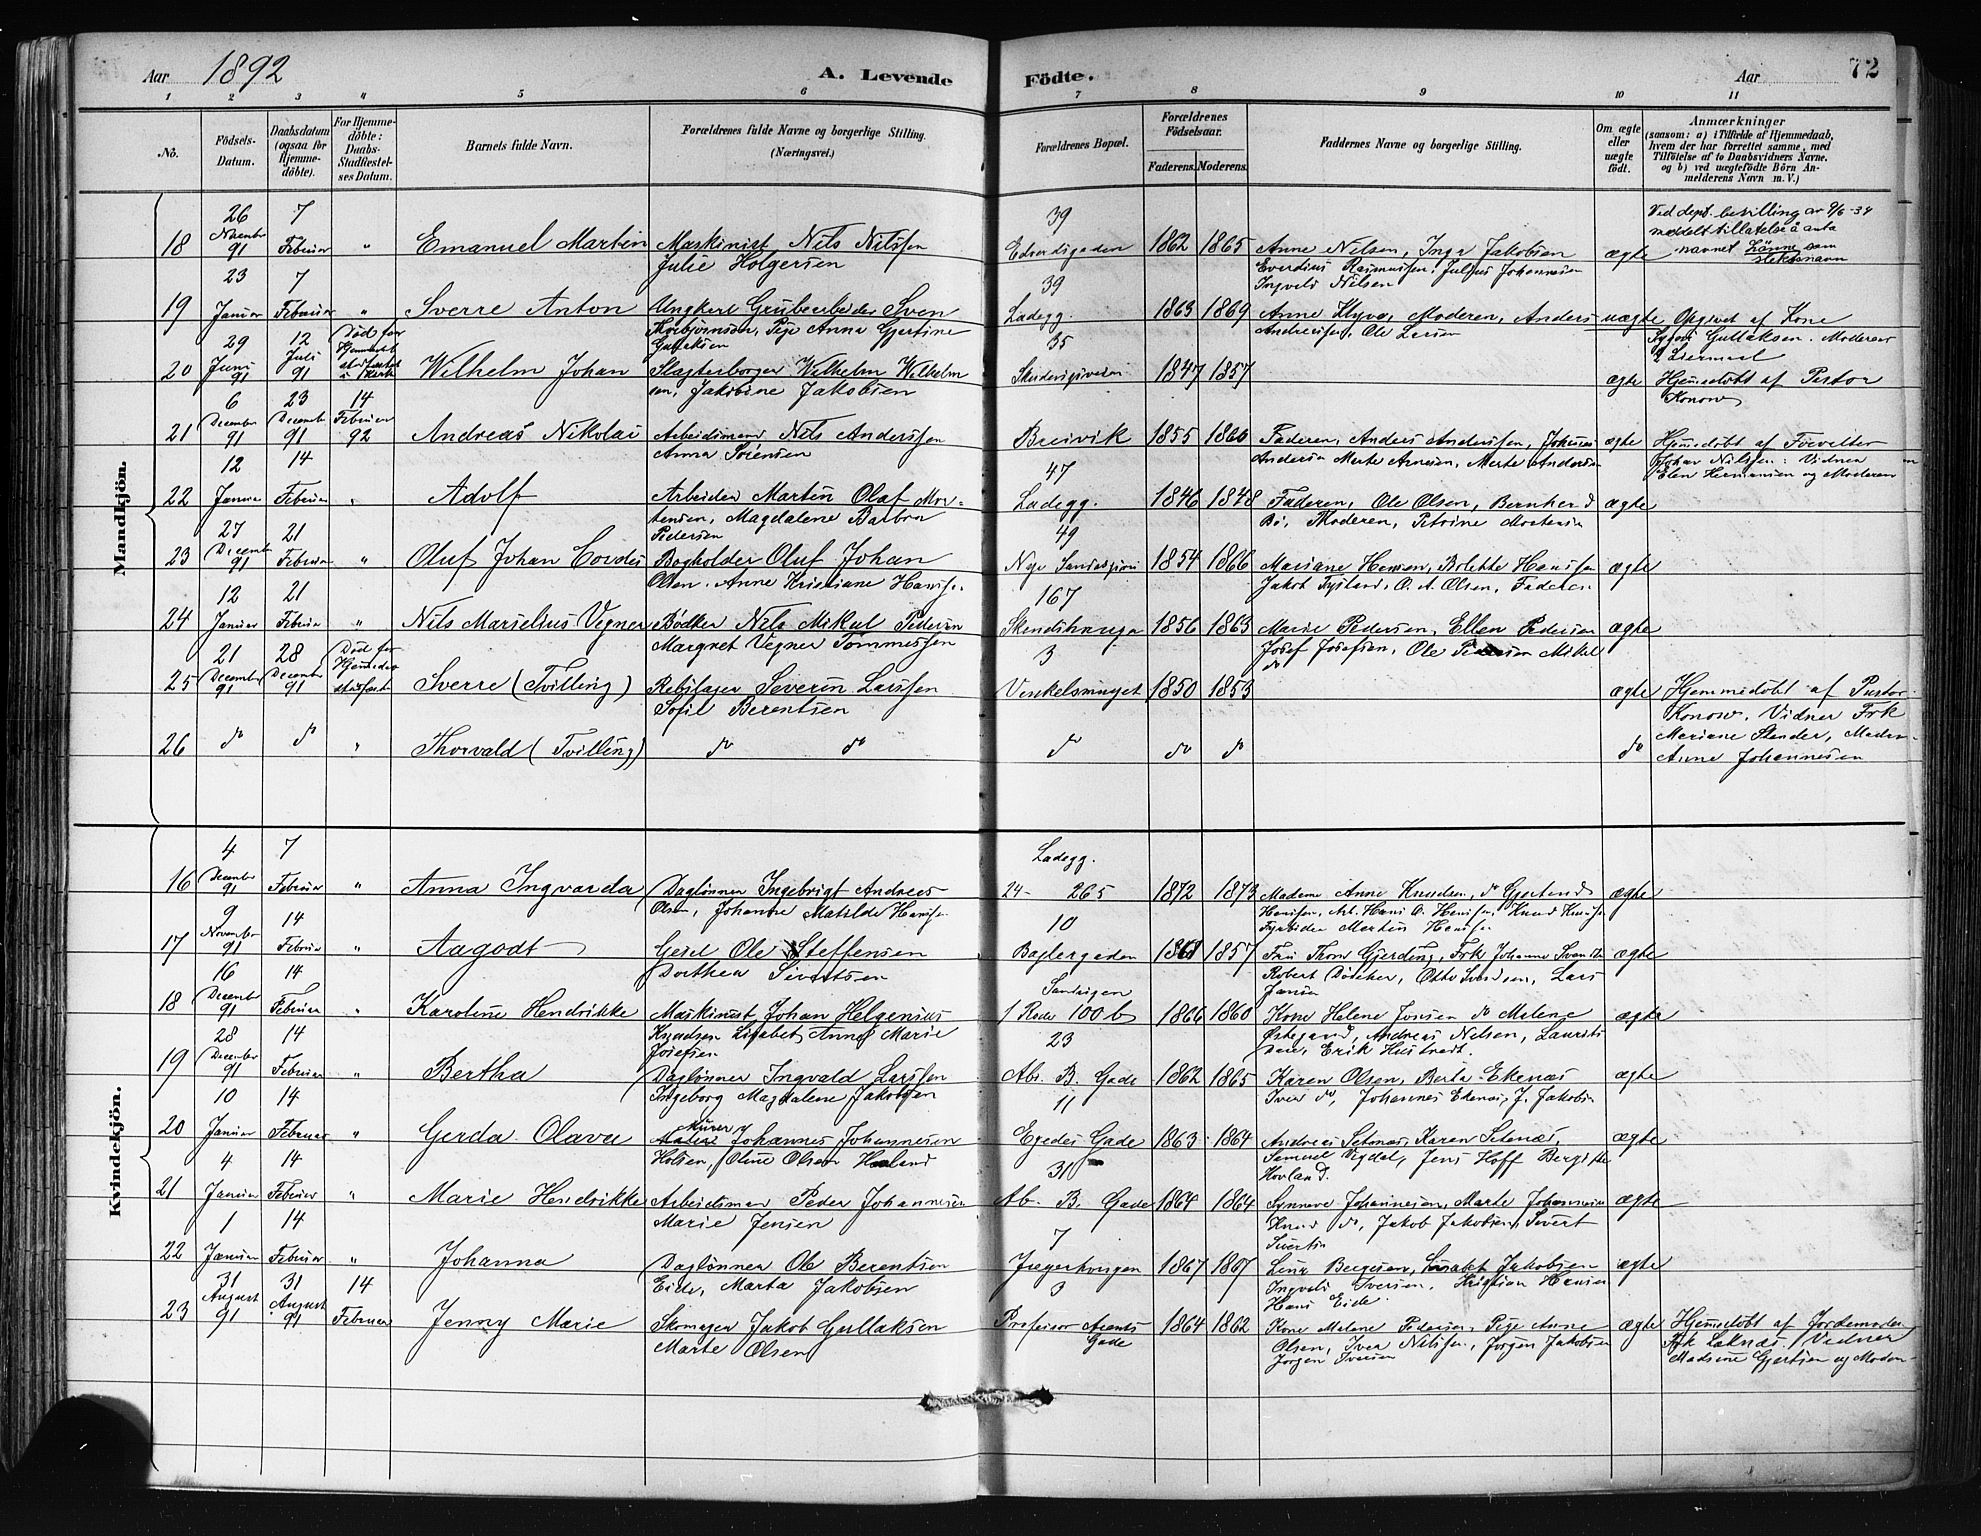 Aar 1892
A. Levende Födte.
Aar 72
1 2 3 4 5 6 7 8 9 10 11
No.
Födsels-Datum.
Daabsdatum (ogsaa for Hjemmedöbte).
For Hjemmedöbte: Daabs-Stadfæstelses Datum.
Barnets fulde Navn.
Forældrenes fulde Navne og borgerlige Stilling. (Næringsvei.)
Forældrenes Bopæl.
Forældrenes Födselsaar.
Faderens. Moderens.
Faddernes Navne og borgerlige Stilling.
Om ægte eller uægte födt.
Anmærkninger
(saasom: a) i Tilfælde af Hjemmedaab,
hvem der har forrettet samme, med
Tilföielse af to Daabsvidners Navne.
og b) ved uægtefödte Börn An-
melderens Navn m. V.)
Mandkjön.
26 7 39 Ved dept. bevilling av 9/6-34
18 November 91 Februar " Emanuel Martin Maskinist Nils Nilssen Edvardsgaden 1862 1865 Anne Nilsen, Inga Jakobsen ægte meddelt tillatelse å anta
Julie Holgersen Everdius Rasmussen, Julius Johannesen navnet Lønne som
Ingvald Nilsen slektsnavn
23 7 39
19 Januar Februar " Sverre Anton Ungkarl Grubearbeider Sven Ladegg. 1863 1869 Anne Klyve, Moderen, Anders uægte Opgivet af Kone
Thorbjørnsen, Pige Anna Gjertine Gullaksen Andreassen, Ole Larsen Gullaksen. Moderen
29 12 Død før 35
20 Juni 91 Juli 91 Wilhelm Johan Slagterborger Wilhelm Wilhelm 1847 1857 ægte Hjemmedøbt af Pastor
sen, Jakobine Jakobsen Konow
6 23 14
21 December 91 December 91 Februar 92 Andreas Nikolai Arbeidsmand Nils Anderssen Breivik 1855 1860 Faderen, Anders Anderssen, Johannes ægte Hjemmedøbt af Forvalter
Anna Sørensen Andersen Marte Arnesen, Marte Andersen Johan Nilssen. Vidner
Elen Hermansen og Moderen
12 14 47
22 Januar Februar " Adolf Arbeider Martin Olaf Mor- Ladegg. 1846 1848 Faderen, Ole Olsen, Bernhard ægte
tensen, Magdalene Barbra Pedersen Bø, Moderen, Petrine Mortensen
27 21 49
23 December 91 Februar " Oluf Johan Cordes Bogholder Oluf Johan Nye Sandvigsvei 1854 1866 Mariane Hansen, Bolette Hanssen ægte
Olsen. Anne Kristiane Hanssen Jakob Tysland, O. A. Olsen, Faderen
12 21 167
24 Januar Februar " Nils Marselius Vegner Bødker Nils Mikal Pedersen 1856 1863 Marie Pedersen, Ellen Pedersen ægte
Margret Vegner Tommessen Josef Josefsen, Ole Pedersen Mikal do
21 28 Død før 3
25 December 91 December 91 Sverre (Tvilling) Rebslager Severin Larssen Vinkelsmuget 1850 1853 ægte Hjemmedøbt af Pastor
Sofie Berentsen Konow. Vidner Frk
26 do do " Thorvald (Tvilling) do do do do do do Mariane Stender, Madam
Anne Johannesen
Kvindekjön.
4 7 Ladegg.
16 December 91 Februar " Anna Ingvarda Daglønner Ingebrigt Andreas 24 - 265 1872 1873 Madame Anne Knudsen, do Gjertine ægte
Olsen, Johanne Matilde Hanssen Hanssen, Arb. Hans O. Hanssen, Knud Knudsen
Fyrbøder Martius Hansen
9 14 10
17 November 91 Februar " Aagodt Gesel Ole Steffensen Baglergaden 1861 1857 Fru Thora Gjerding, Frk Johanne Svendsen ægte
Dorthea Sivertsen Robert Dücker, Otto Svendsen, Lars
Jansen
16 14 Sandvigen
18 December 91 Februar " Karoline Hendrikke Maskinist Johan Helgenius 1 Rode 100 b 1866 1860 Kone Helene Jonsen do Malene ægte
Knudsen Lisabet Anne Marie Josefsen Østegaard, Andreas Nilsen, Laurits
Dau, Erik Hustvedt.
28 14 23
19 December 91 Februar " Bertha Daglønner Ingvald Larssen Abs. B. Gade 1862 1865 Karen Olsen, Berta Ekenæs ægte
Ingeborg Magdalene Jakobsen Iver do, Johannes Ekenæs, J. Jakobsen
10 14 11
20 Januar Februar " Gerda Olava Murer Johannes Johannesen Egedes Gade 1863 1864 Andreas Setenæs, Karen Setenæs, ægte
Holsen, Oline Olsen Samuel Vigdal, Jens Hoff Bergitte
Hovland.
4 14 31
21 Januar Februar " Marie Hendrikke Arbeidsmand Peder Johannesen Ab. B. Gade 1864 1864 Synneve Johannesen, Marte Johannesen ægte
Marie Jensen Knud do, Jakob Jakobsen, Sivert
Sivertsen
1 14 7
22 Januar Februar " Johanna Daglønner Ole Berentsen 1867 1867 Lina Børgesen, Lisabet Jakobsen ægte
Eide, Marta Jakobsen Ingvald Iversen. Kristian Hansen
Hans Eide.
31 31 14 3
23 August 91 August 91 Februar Jenny Marie Skomager Jakob Gullaksen Professor Arents Gade 1864 1862 Kone Malene Pedersen, Pige Anne ægte Hjemmedøbt af Jordemoder
Marte Olsen Olsen, Iver Nilssen, Jørgen Jakobsen Frk Laknæs. Vidner
Jørgen Iversen Madame Gjertsen og Moderen